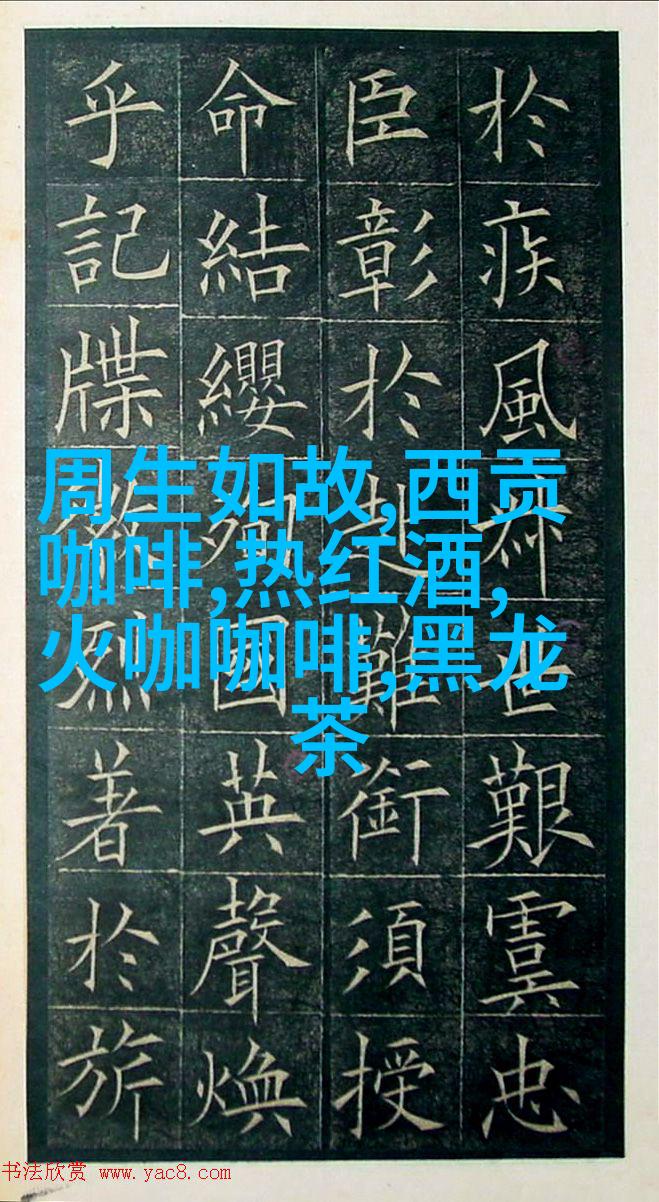 於疾風世艱虞忠
臣彰於赴難銜須授
命結纓殉國英聲煥
乎記牒烈著於旂
周生如故,西贡
咖啡,热红酒,
火咖咖啡,黑龙
茶
书法欣赏 www.yac8.com